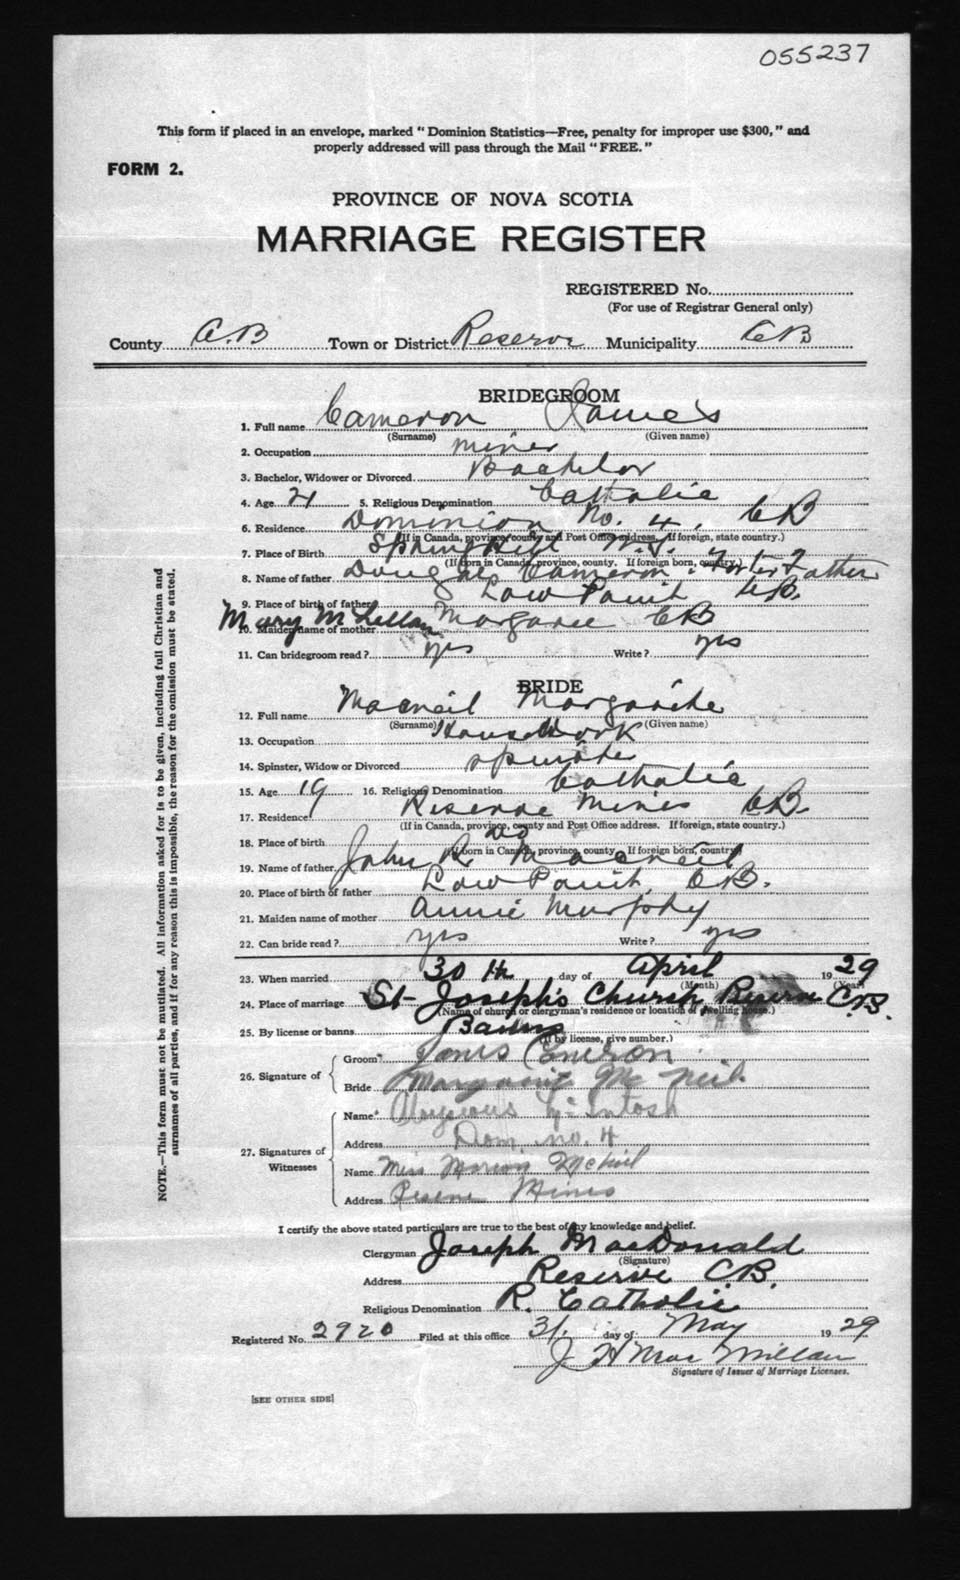 055237
This form if placed in an envelope, marked "Dominion Statistics—Free, penalty for improper use $300," and
properly addressed will pass through the Mail "FREE."
FORM 2.
PROVINCE OF NOVA SCOTIA
MARRIAGE REGISTER
REGISTERED No.
(For use of Registrar General only)
County C.B Town or District Reserve Municipality CB
BRIDEGROOM
1. Full name Cameron James
(Surname) (Given name)
2. Occupation miner
3. Bachelor, Widower or Divorced Bachelor
4. Age 21 5. Religious Denomination Catholic
6. Residence Dominion No. 4. CB
(If in Canada, province, county and Post Office address. If foreign, state country.)
7. Place of Birth Springhill N.S.
(If born in Canada, province, county. If foreign born, country.)
8. Name of father Douglas Cameron: Foster Father
9. Place of birth of father Low Point CB.
10. Maiden name of mother Mary McLellan Margaree CB
11. Can bridegroom read? yes Write? yes
BRIDE
12. Full name Macneil Margarite
(Surname) (Given name)
13. Occupation House Work
14. Spinster, Widow or Divorced spinster
15. Age 19 16. Religious Denomination Catholic
17. Residence Reserve Mines CB.
(If in Canada, province, county and Post Office address. If foreign, state country.)
18. Place of birth Do
(If born in Canada, province, county. If foreign born, country)
19. Name of father John R. Macneil
20. Place of birth of father Low Point, CB.
21. Maiden name of mother Annie Murphy
22. Can bride read? yes Write? yes
23. When married 30th day of April 1929
(Month) (Year)
24. Place of marriage St Joseph's Church, Reserve C.B.
(Name of church or clergyman's residence or location of dwelling house.)
25. By license or banns Banns
(If by license, give number.)
26. Signature of
Groom James Cameron
Bride Margarite McNeil
27. Signatures of Witnesses
Name McIntosh
Address Dom no. 4
Name Miss Marion McNeil
Address Reserve Mines
I certify the above stated particulars are true to the best of my knowledge and belief.
Clergyman Joseph MacDonald
(Signature)
Address Reserve C.B.
Religious Denomination R. Catholic
Registered No. 2920 Filed at this office 31. day of May 1929
J H MacMillan
Signature of Issuer of Marriage Licenses.
[SEE OTHER SIDE]
NOTE.—This form must not be mutilated. All information asked for is to be given, including full Christian and
surnames of all parties, and if for any reason this is impossible, the reason for the omission must be stated.